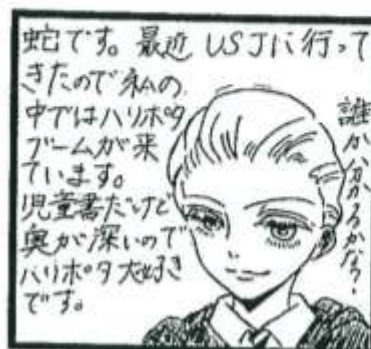 蛇です。最近USJに行って
きたので私の
中ではハリポタ
ブームが来
ています。
児童書だけど
奥が深いので
ハリポタ大好き
です。
誰か分かるかな?